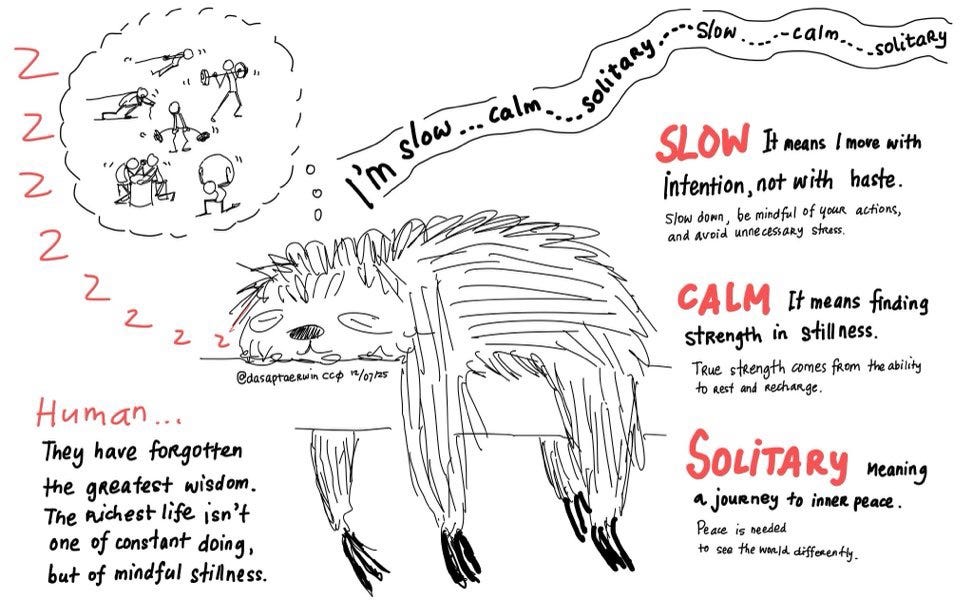 Z
Z
Z
Z
Z
Z
Z
Z
I'm slow ... calm ....solitary.....slow ......calm.....solitary
SLOW It means I move with
intention, not with haste.
Slow down, be mindful of your actions,
and avoid unnecessary stress.
CALM It means finding
strength in stillness.
True strength comes from the ability
to rest and recharge.
SOLITARY Meaning
a journey to inner peace.
Peace is needed
to see the world differently.
@dasaptaerwin CC0 12/07/25
Human...
They have forgotten
the greatest wisdom.
The richest life isn't
one of constant doing,
but of mindful stillness.